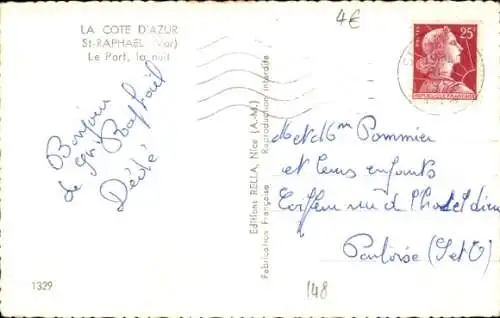 4€
LA COTE D'AZUR
St-RAPHAEL (Var)
Le Port, la nuit
25F
POSTES
REPUBLIQUE FRANCAISE
Bonjour
de St Raphaël
Dédé
Editions RELLA, Nice (A.-M.)
Fabrication Française - Reproduction interdite
Met Mm Pommier
et leurs enfants
Coiffeur rue de l'hotel dieu
Pontoise (S et O)
1329
148